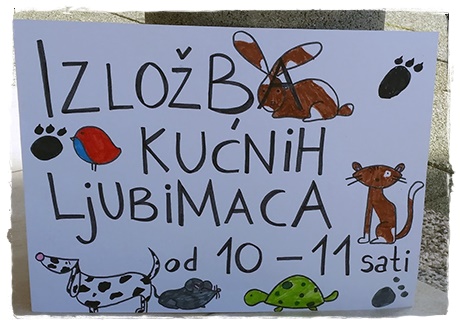 IZLOŽBA
KUĆNIH
LJUBIMACA
od 10 - 11 sati